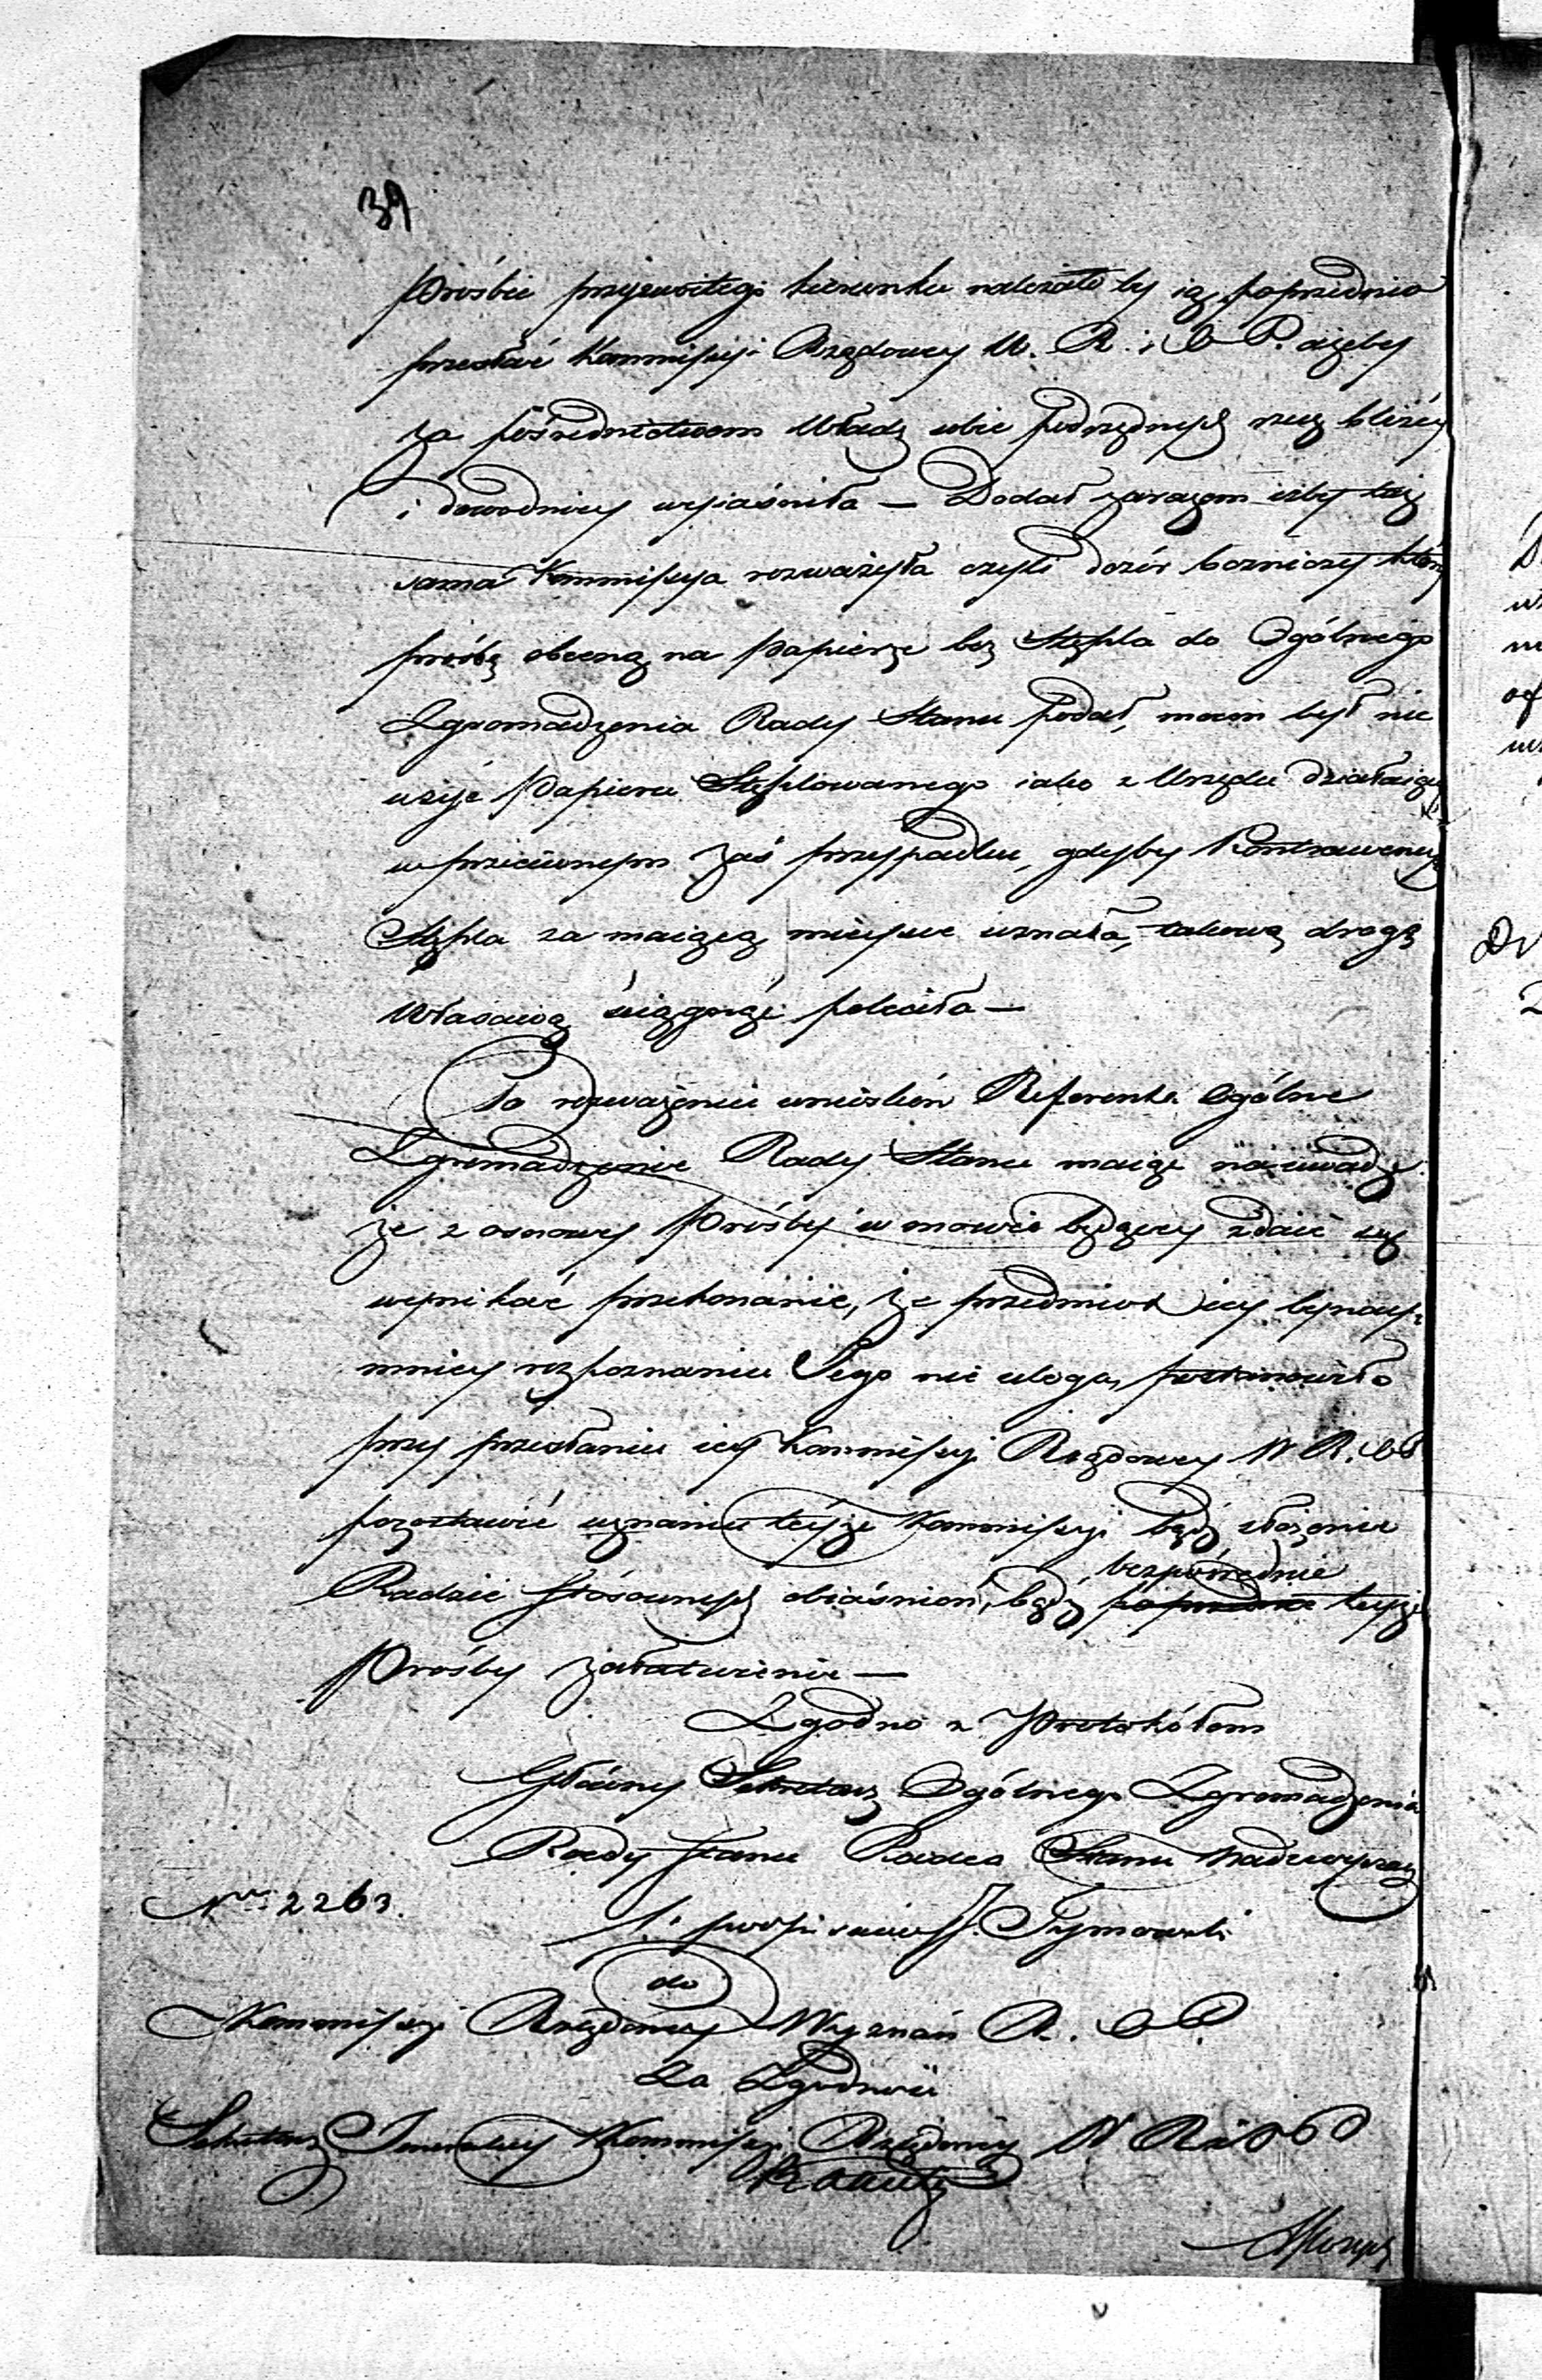 39
Prośbie przyzwoitego kierunku należało by ią poprzednio
przesłać Kommissyi Rządowey W. R. i O P. ażeby
za pośrednictwem Władz sobie podrzędnych rzecz bliżey
i dowodniey wyiaśniła — Dodał zarazem iżby taż
sama Kommissya rozważyła czyli dozór bożniczy który
prośbę obecną na Papierze bez Stępla do Ogólnego
Zgromadzenia Rady Stanu podał, mocen był nie
użyć Papieru Stęplowanego iako z Urzędu działaiący
w przeciwnym zaś przypadku, gdyby Kontrawencyą
Stępla za maiącą mieysce uznała, takową drogą
Właściwą ściągnąć poleciła —
Po rozważeniu wniosków Referenta Ogólne
Zgromadzenie Rady Stanu maiąc na uwadze
że z osnowy Prośby w mowie będącey zdaie się
wynikać przekonanie, że przedmiot iey bynay-
mniey rozpoznaniu Jego nie ulega, postanowiło
przy przesłaniu iey Kommissyi Rządowey W. R. i O P
pozostawić uznaniu teyże Kommissyi bądź złożenie
bezpośrednie
Radzie stósownych obiaśnień, bądź poprzednie teyże
Prośby załatwienie —
Zgodno z Protokółem
Główny Sekretarz Ogólnego Zgromadzenia
Rady Stanu Radca Stanu Nadzwyczay
Nro 2263.
/. podpisano J. Tymowski
do
Kommissyi Rządowey Wyznań R. i O P
Za Zgodność
Sekretarz Jeneralny Kommissyi Rządowey W R i O P